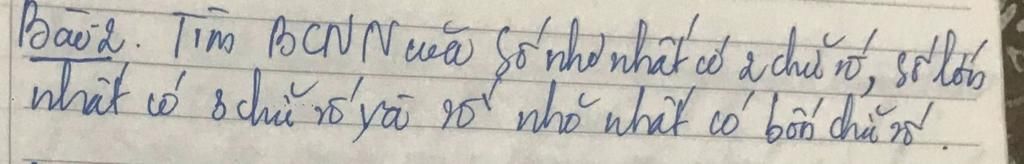 Bài 2. Tìm BCNN của số nhỏ nhất có 2 chữ số, số lớn
nhất có 3 chữ số và số nhỏ nhất có bốn chữ số.